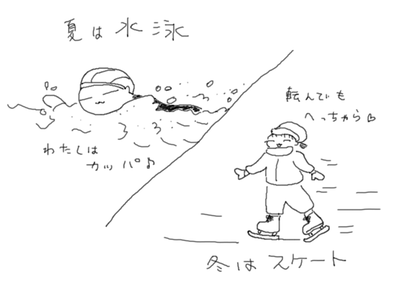 夏は水泳
わたしは
カッパ♪
転んでも
へっちゃら
冬はスケート